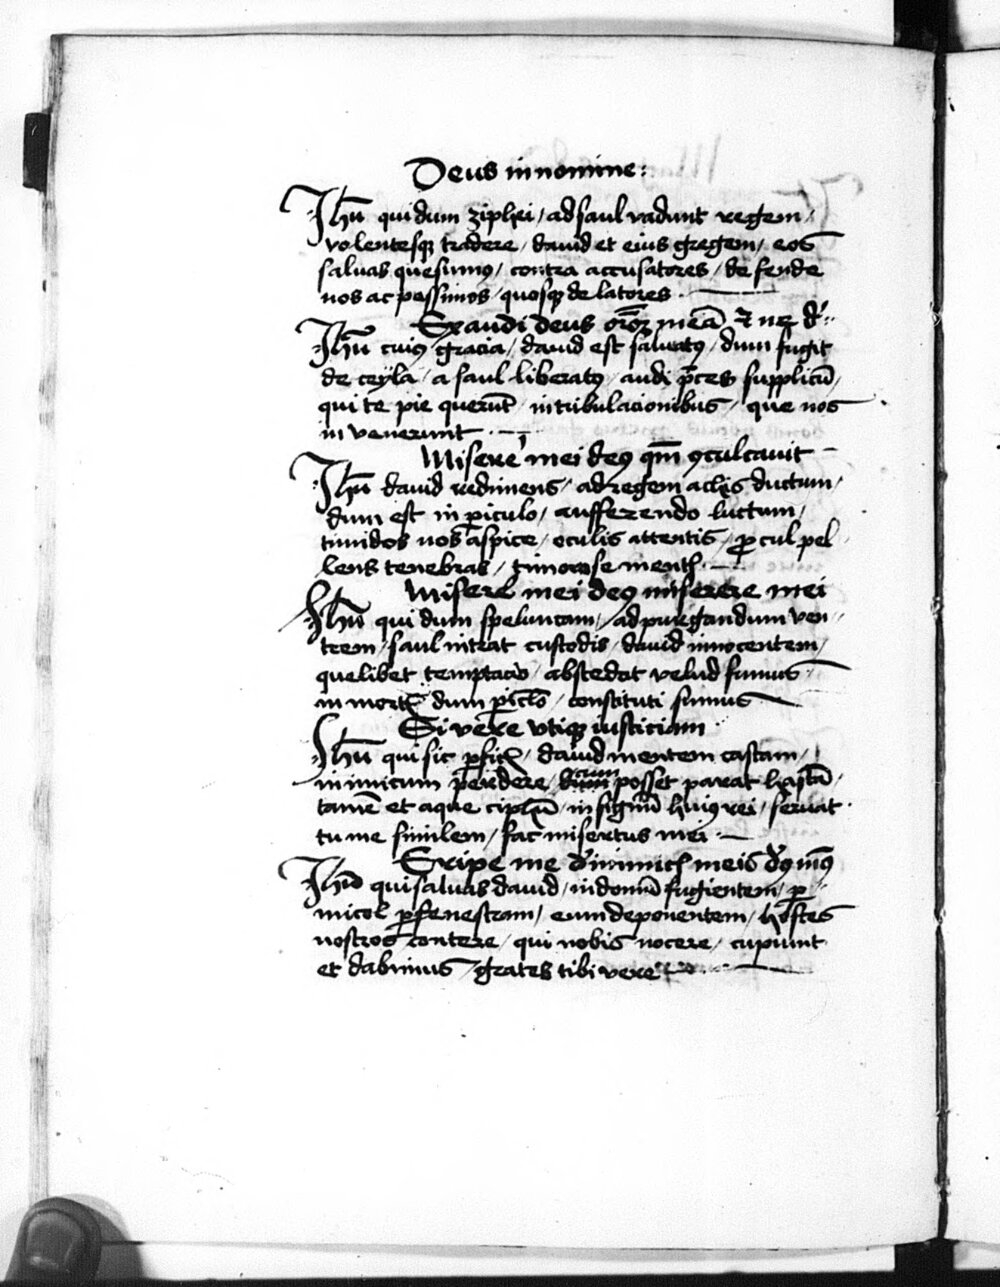 Deus in nomine:
Jhu̅ qui dum ziphei / ad saul vadunt regem /
volentesq; tradere / dauid et eius gregem / eos
saluas quesumꝰ / contra accusatores / defende
nos ac pessimos / quosq; delatores.
Exaudi deus or̅oꝫ mea̅ ⁊ ne d':
Jhu̅ cuiꝰ gracia / dauid est saluatꝰ / dum fugit
de ceyla / a saul liberatꝰ / audi p̅ces supplicu̅ /
qui te pie queru̅t / in tribulacionibus / que nos
in venerunt.
Misere' mei deꝰ qm̅ ꝯculcauit
Jhu̅ dauid redimens / ad regem achis ductum /
dum est in ꝑiculo / aufferendo luctum /
timidos nos aspice / oculis attentis / ꝓcul pel
lens tenebras / timorose mentꝭ.
Misere' mei deꝰ miserere mei
Jhu̅ qui dum speluncam / ad purgandum ven
trem / saul intrat custodis / dauid innocentem /
quelibet temptacio / abscedat velud fumus
in mortꝭ dum ꝑiclo̅ / constituti sumus
Si vere vtiq; iusticiam
Jhu̅ qui sic ꝑficꝭ / dauid mentem castam /
inimicum ꝑeridere / cum posset parat hasta̅ /
tame̅ et aque ciphu̅ / in signu̅ huiꝰ rei / seruat
tu me similem / fac misertus mei.
Eripe me d' inimicꝭ meis dꝰ mꝰ
Jhu̅ qui saluas dauid / in domu̅ fugientem / ꝑ
micol ꝑ fenestram / eum deponentem / hostes
nostros contere / qui nobis nocere / cupiunt
et dabimus / grates tibi vere